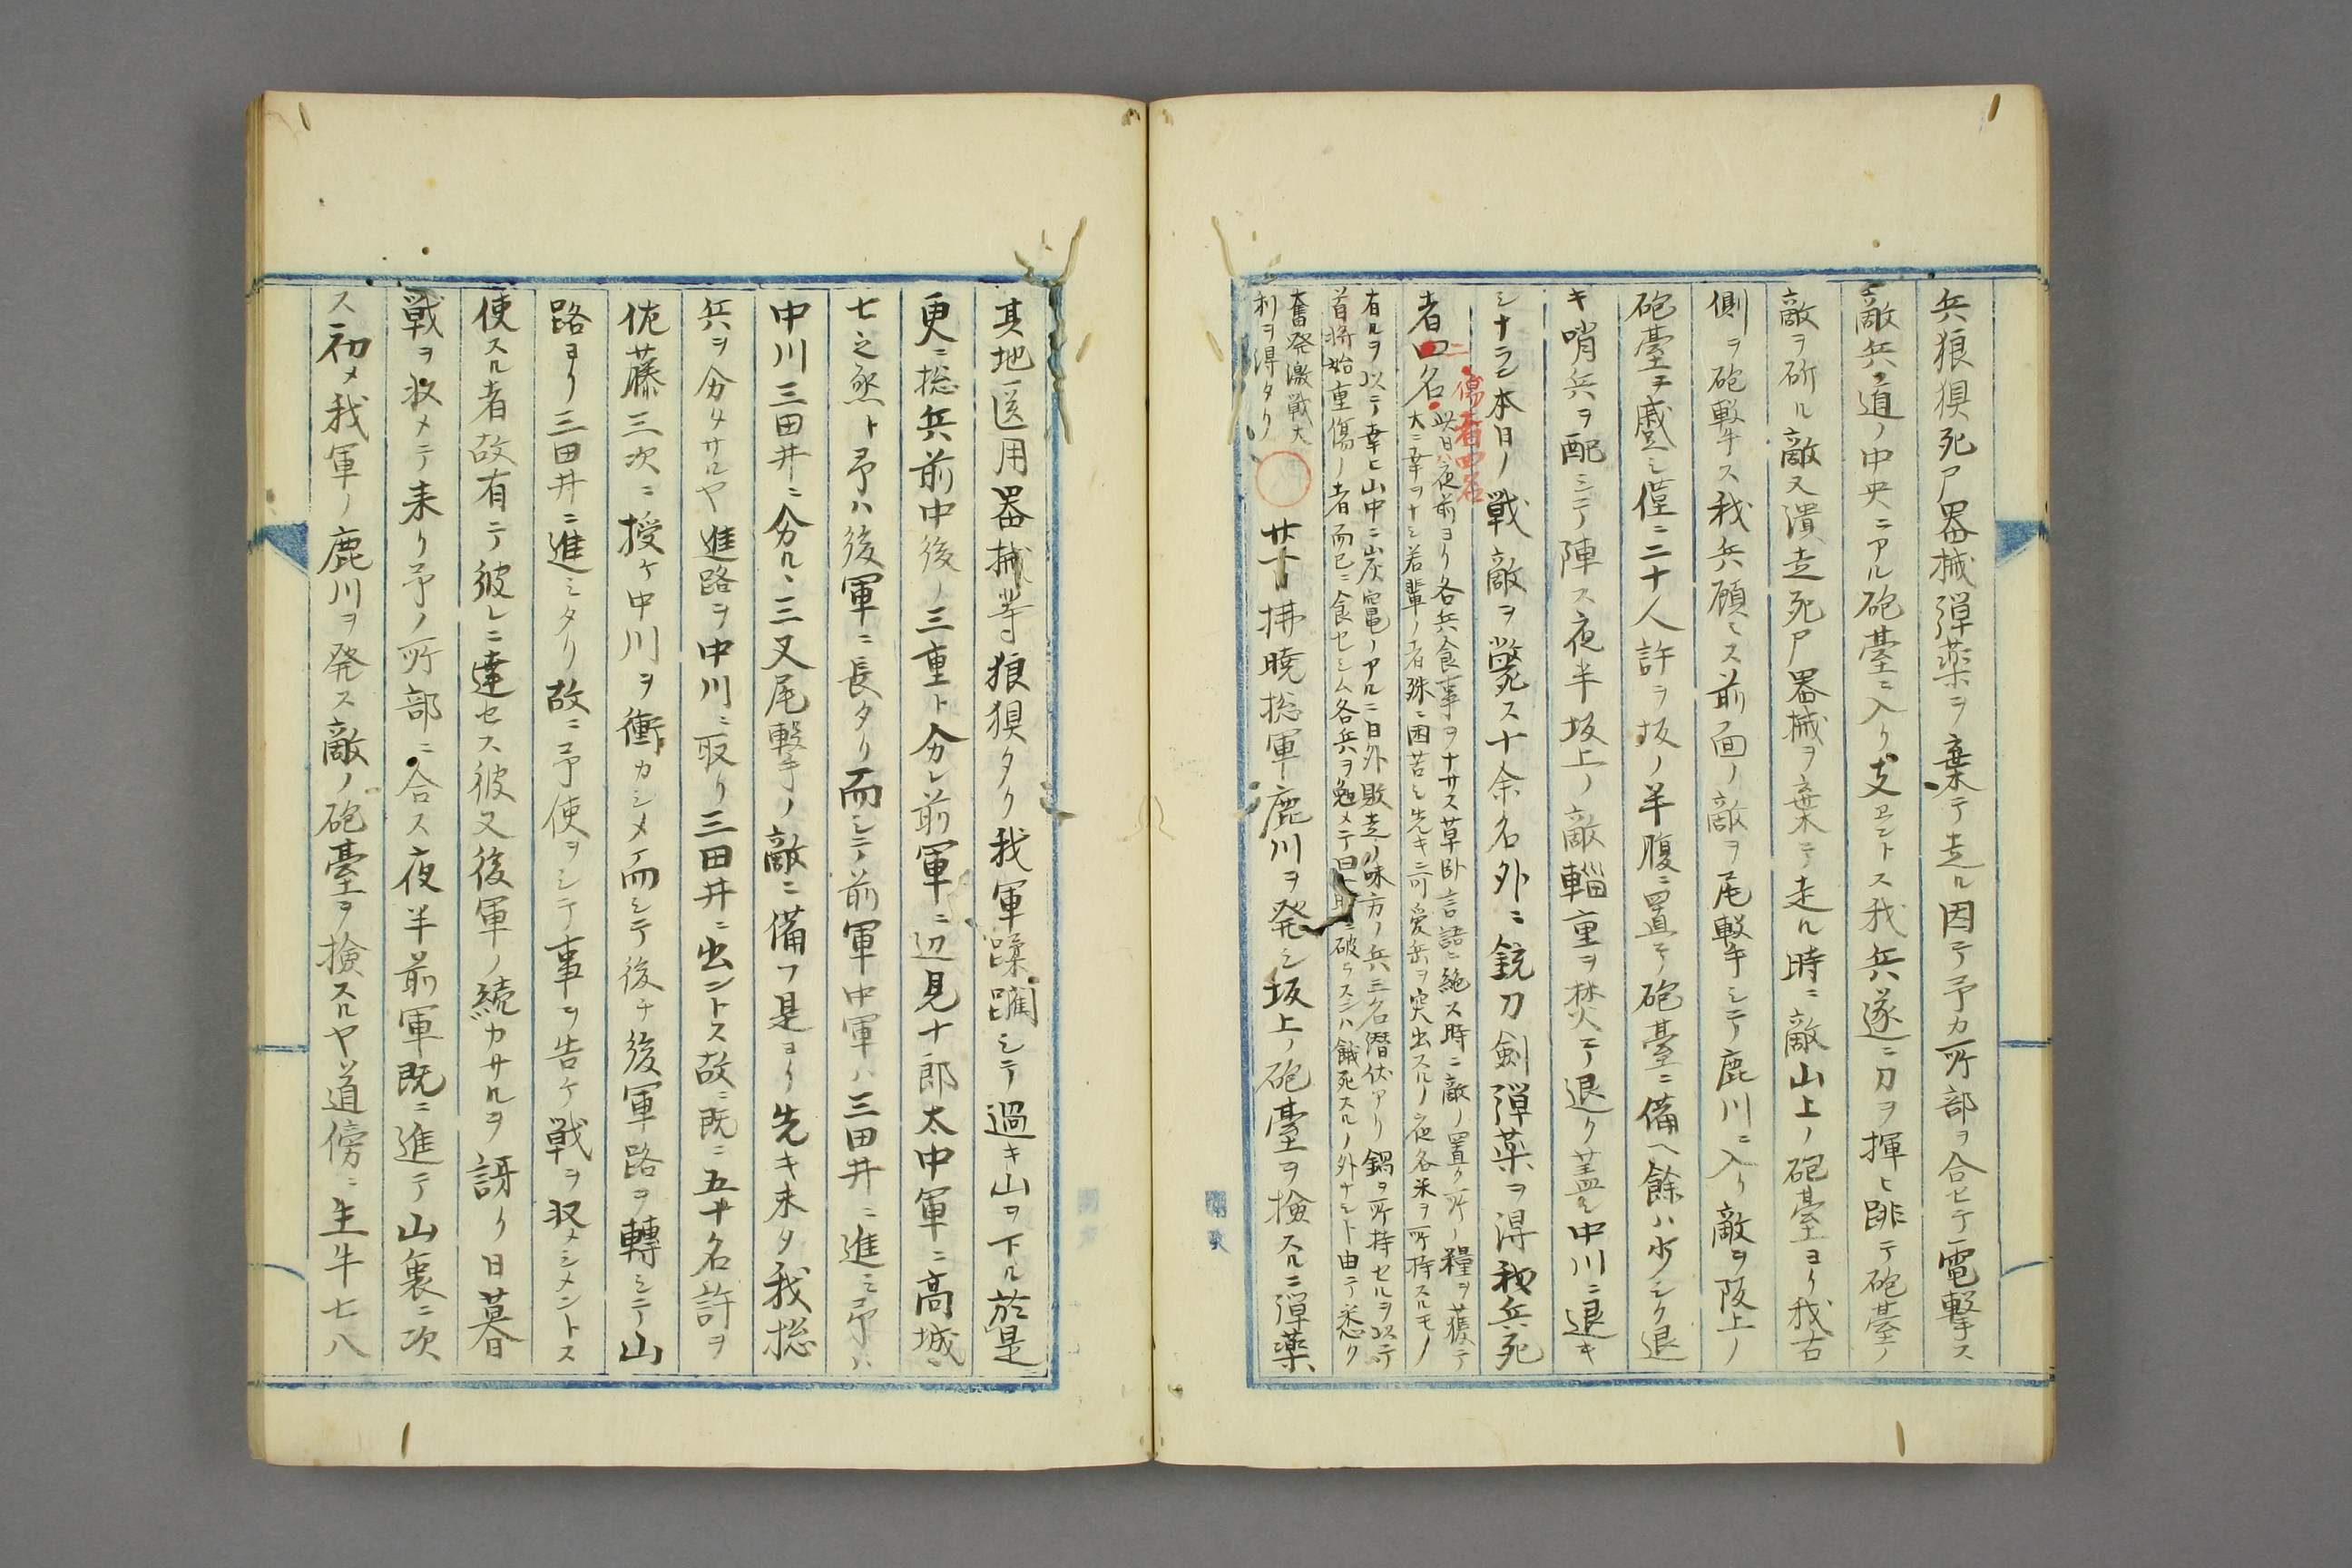 兵狼狽死尸器械弾薬ヲ棄テ走ル因テ予カ所部ヲ合セテ電撃ス
敵兵道ノ中央ニアル砲臺ニ入リ支ヱントス我兵遂ニ刀ヲ揮ヒ跳テ砲臺ノ
敵ヲ斫ル敵又潰走死尸器械ヲ棄テ走ル時ニ敵山上ノ砲臺ヨリ我右
側ヲ砲撃ス我兵顧ミス前面ノ敵ヲ尾撃シテ鹿川ニ入リ敵ヲ阪上ノ
砲臺ニ蹙シ僅ニ二十人許ヲ坂ノ半腹ニ置キ砲臺ニ備ヘ餘ハ少シク退
キ哨兵ヲ配シテ陣ス夜半坂上ノ敵輜重ヲ焚テ退ク蓋シ中川ニ退キ
シナラン本日ノ戦敵ヲ斃ス十余名外ニ銃刀剣弾薬ヲ得我兵死
者二名傷者四名
此日ハ夜前ヨリ各兵食事ヲナサス草臥言語ニ絶ス時ニ敵ノ置ク所ノ糧ヲ獲テ
大ニ幸ヲナシ若輩ノ者殊ニ困苦シ先キニ可愛岳ヲ突出スルノ夜各米ヲ所持スルモノ
有ルヲ以テ幸ヒ山中ニ炭竃ノアルニ日外敗走ノ味方ノ兵三名潜伏アリ鍋ヲ所持セルヲ以テ
首将始重傷ノ者而已ニ食セシム各兵ヲ勉メテ曰ク明ニ破ラスンハ餓死スルノ外ナシト由テ悉ク
奮発激戦大
利ヲ得タリ
廿一日拂暁総軍鹿川ヲ発シ坂上ノ砲臺ヲ検スルニ弾薬
其地医用器械等狼狽タリ我軍蹂躙シテ過キ山ヲ下ル於是
更ニ総兵前中後ノ三重ト分レ前軍ニ辺見十郎太中軍ニ高城
七之丞ト予ハ後軍ニ長タリ而シテ前軍中軍ハ三田井ニ進ミ予ハ
中川三田井ニ分ルヽ三又尾撃ノ敵ニ備フ是ヨリ先キ未タ我総
兵ヲ分タサルヤ進路ヲ中川ニ取リ三田井ニ出ントス故ニ既ニ五十名許ヲ
佐藤三次ニ授ケ中川ヲ衝カシメ而シテ後チ後軍路ヲ轉シテ山
路ヨリ三田井ニ進ミタリ故ニ予使ヲシテ事ヲ告ケ戦ヲ収メシメントス
使スル者故有テ彼レニ達セス彼又後軍ノ続カサルヲ訝リ日暮
戦ヲ収メテ来リ予ノ所部ニ合ス夜半前軍既ニ進テ山裏ニ次
ス初メ我軍ノ鹿川ヲ発ス敵ノ砲臺ヲ検スルヤ道傍ニ生牛七八